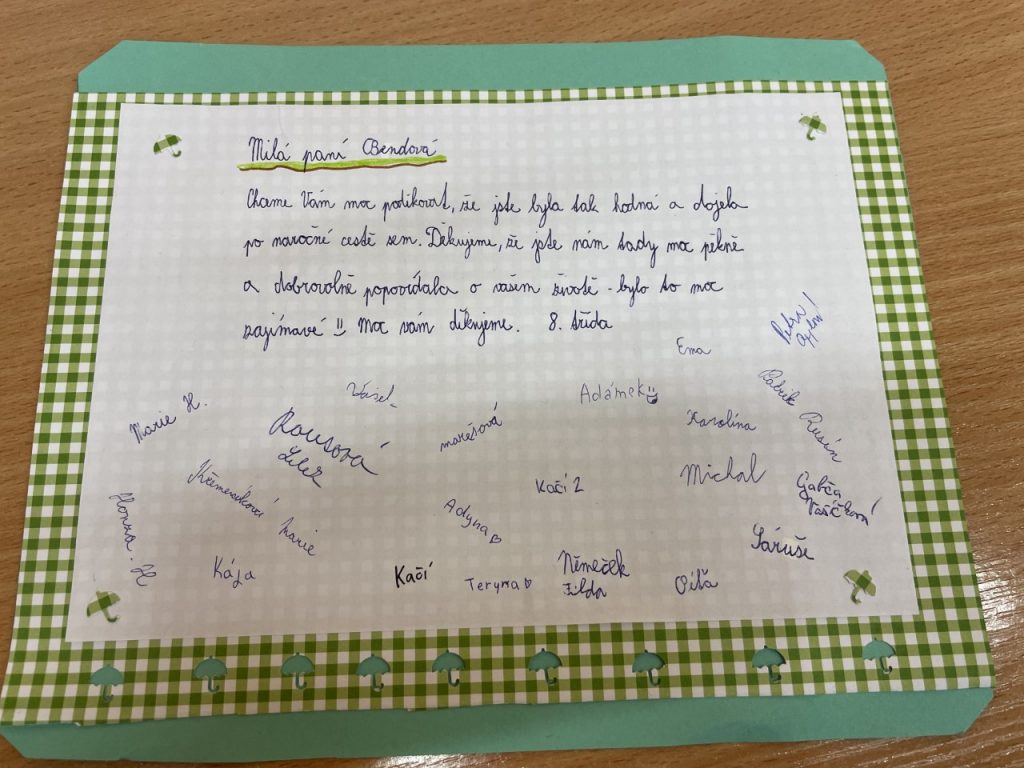 Milá paní Bendová
Chceme Vám moc poděkovat, že jste byla tak hodná a dojela
po naročné cestě sem. Děkujeme, že jste nám tady moc pěkně
a dobrovolně popovídala o vašem životě - bylo to moc
zajímavé Moc vám děkujeme. 8. třída
Ema
Marie H.
Adámek
Patrik Rusín
Rousová
marešová
Karolína
Michal
Kačí 2
Gabča
Adyna
Marie
Honza. H
Sáruše
Kája
Kačí
Teryna
Němeček
Filda